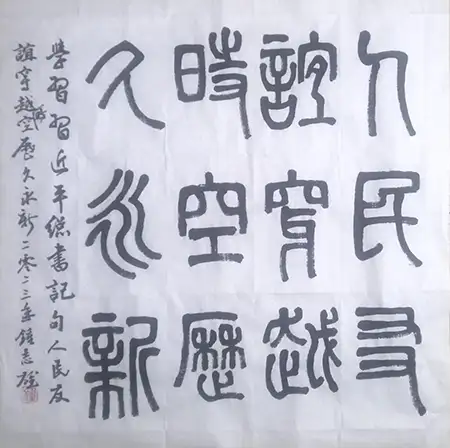 人民友
誼穿越
時空歷
久永新
學習習近平總書記句人民友
誼穿越時空歷久永新二零二三年鍾志雄